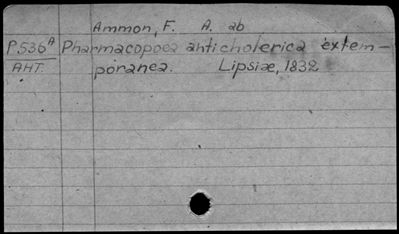 Ammon, F. A. ab
P.536A Pharmacopoea anticholerica extem-
AHT. poranea. Lipsiæ, 1832